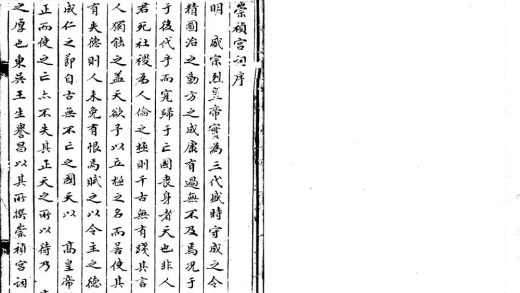 崇禎宮詞序
明 威宗烈皇帝實為三代盛時守成之令
精圖治之勤方之成康有過無不及焉况于
于後代乎而究歸于亡國喪身者天也非人
君死社稷為人倫之極則千古無有踐其言
人獨能之蓋天欲予以立極之名而苟使其
有失德則人未免有恨焉賦之以令主之德
成仁之節自古無不亡之國天以 高皇帝
正而使之亡亦不失其正天之所以待乃
之厚也東吳王生譽昌以其所撰崇禎宮詞